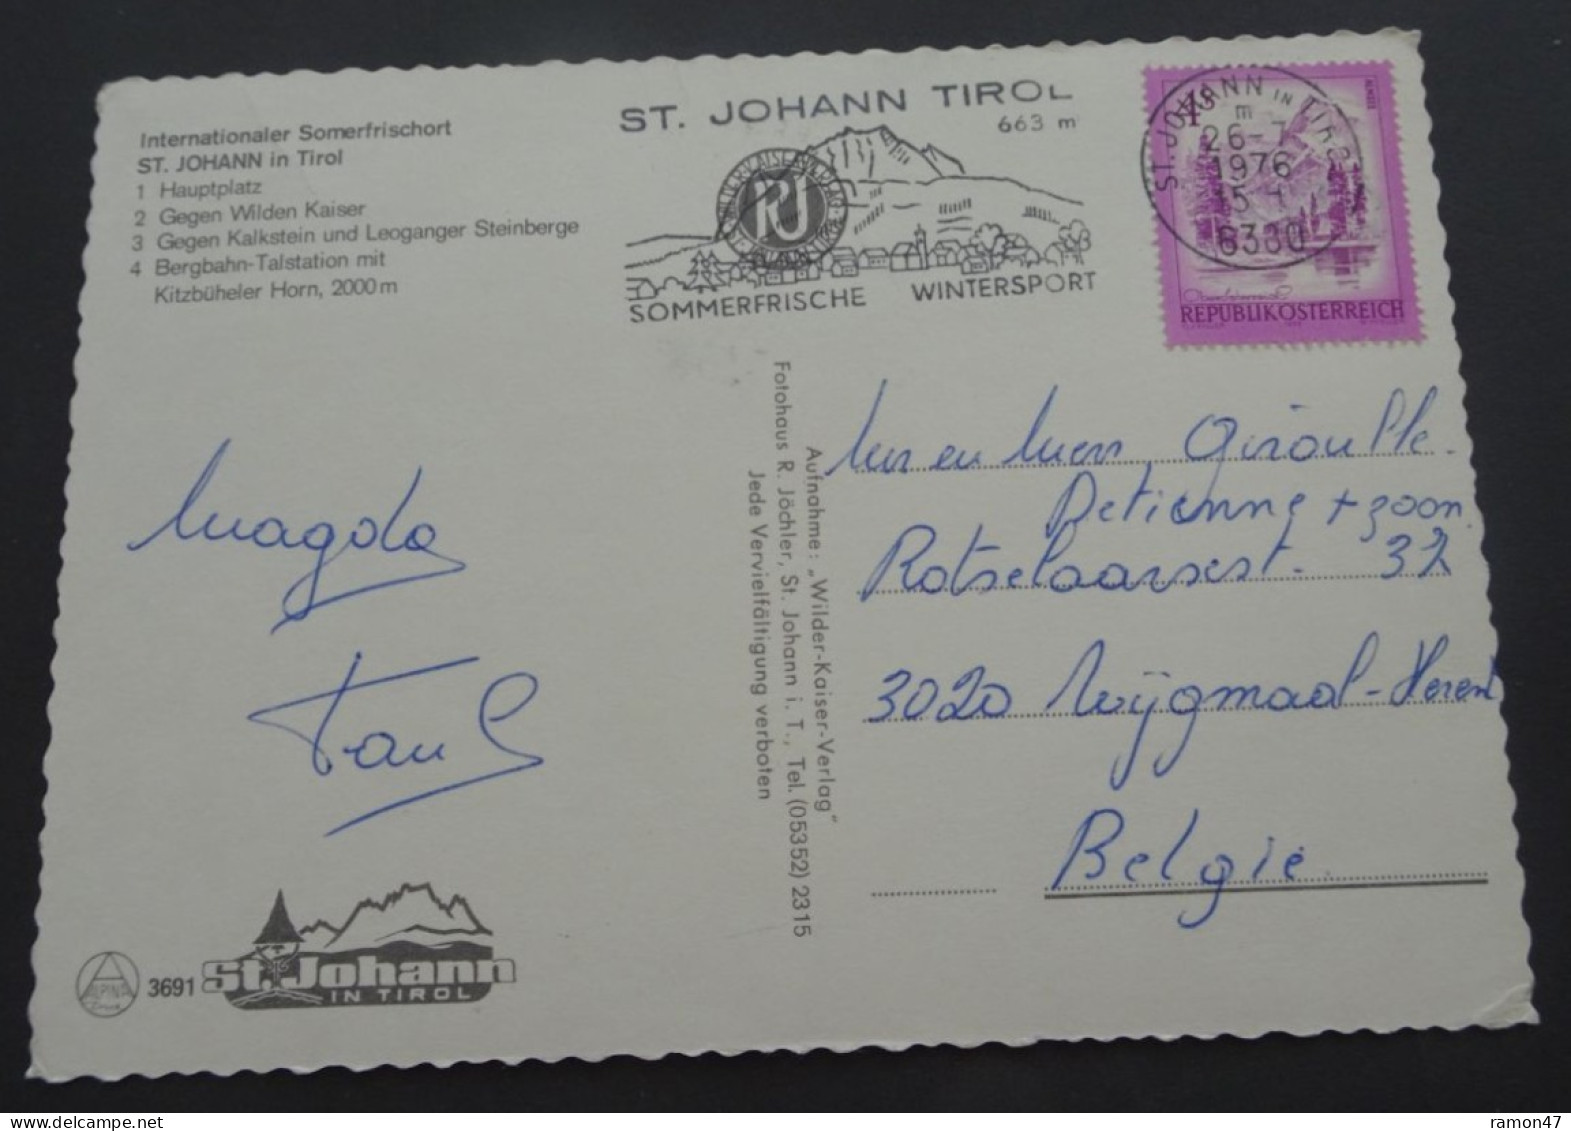 Internationaler Somerfrischort
ST. JOHANN in Tirol
1 Hauptplatz
2 Gegen Wilden Kaiser
3 Gegen Kalkstein und Leoganger Steinberge
4 Bergbahn-Talstation mit
Kitzbüheler Horn, 2000 m
ST. JOHANN TIROL
663 m
SOMMERFRISCHE WINTERSPORT
ST. JOHANN IN TIROL
m
26-7
1976
15
6380
4 S
REPUBLIK ÖSTERREICH
Magda
Paul
Aufnahme: „Wilder-Kaiser-Verlag"
Fotohaus R. Jöchler, St. Johann i. T., Tel. (05352) 2315
Jede Vervielfältigung verboten
en Girouille
Detienne + zoon.
Rotselaarsest. 32
3020 Wijgmaal-Herent
België
ALPINA
3691
St. Johann
IN TIROL
delcampe.net
ramon47